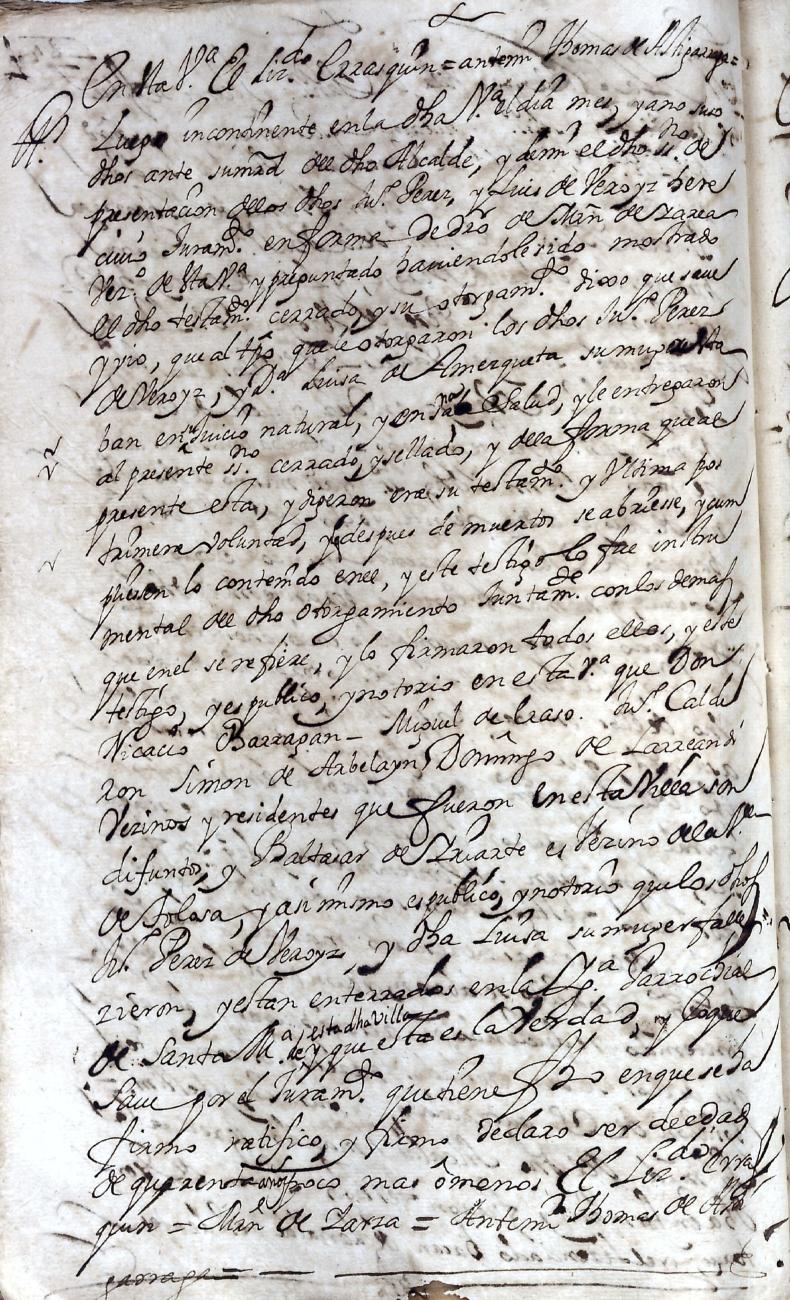 En esta V.ª El Liz.do Errasquin = antemi Thomas de Astigarraga =
tt.º Luego incontinente en la dha V.ª el dia mes, y ano suso
dhos ante su md del dho Alcalde, y de mi el dho ss.no de
presentacion de los dhos Ju.º Perez, y Luis de Veroyz here
civio Juram.to en forma de dro de Mrn de Zarza
Vez.º de esta V.ª y preguntado haviendole sido mostrado
el dho testam.to cerrado y su otorgam.to dixo que save
y vio, que al tpo que le otorgaron los dhos Ju.º Perez
de Veroyz, y D.ª Luisa de Amezqueta su muger esta
ban en su Juicio natural, y en sana Salud, y le entregaron
al presente ss.no cerrado, y sellado, y de la forma que al
presente esta, y digeron era su testam.to y Ultima pos
trimera voluntad, y despues de muertos se abriesse, y cum
pliesen lo contenido en el, y este testigo lo fue instru
mental del dho otorgamiento Juntam.te con los demas
que en el se refiere, y lo firmaron todos ellos, y este
testigo, y es publico, y notorio en esta V.ª que Don
Nicacio Barragan - Miguel de Eraso. Ju.º Calde
ron Simon de Arbelayn, Domingo de Larreandi
Vezinos y residentes que fueron en esta Villa son
difuntos, y Baltasar de Yriarte es Vezino de la V.ª
de Tolosa, y asi mismo es publico, y notorio que los dhos
Ju.º Perez de Veroyz, y dha Luisa su muger falle
zieron, y estan enterrados en la Yg.ª Parrochial
de Santa M.ª de esta dha Villa y que esta es la Verdad, y lo que
save por el Juram.to que tiene fho en que se ha
firmo ratifico, y firmo declaro ser de edad
de quarenta años poco mas o menos El Liz.do Erras
quin = Mrn de Zarza = Antemi Thomas de Asti
garraga =